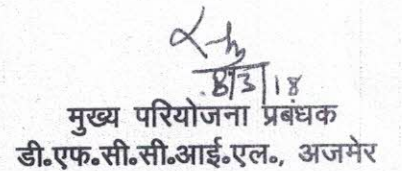 8/3/18
मुख्य परियोजना प्रबंधक
डी॰एफ॰सी॰सी॰आई॰एल॰, अजमेर